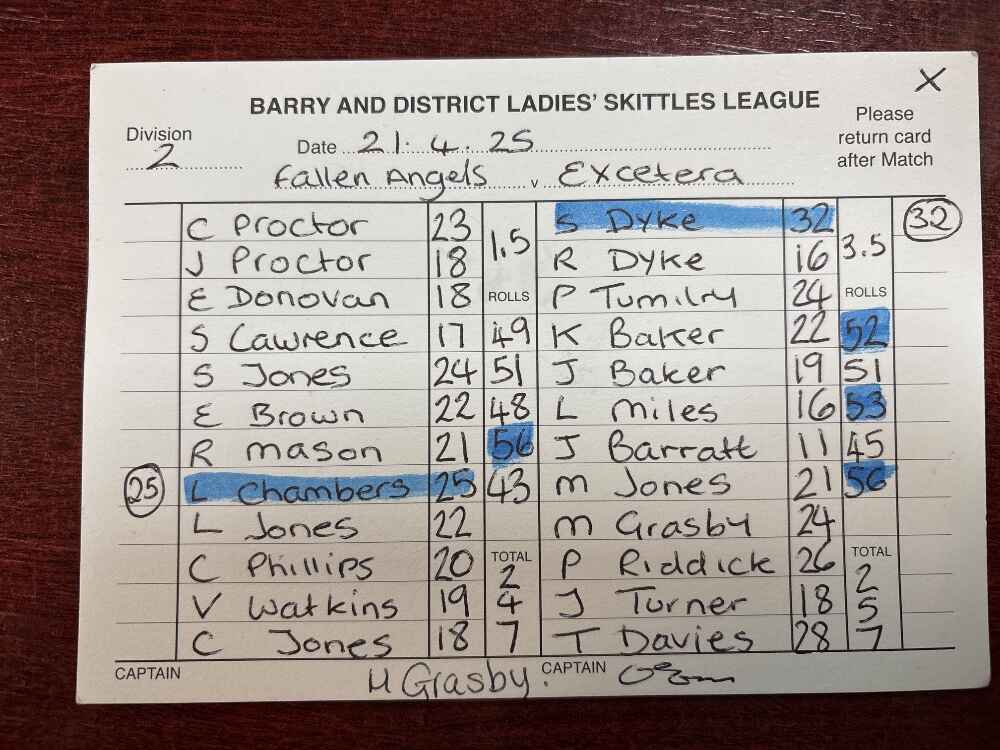 X
BARRY AND DISTRICT LADIES' SKITTLES LEAGUE
Please
return card
after Match
Division
2
Date 21.4.25
Fallen Angels v Excetera
C Proctor 23 1.5 S Dyke 32 3.5 32
J Proctor 18 R Dyke 16
E Donovan 18 ROLLS P Tumilry 24 ROLLS
S Lawrence 17 49 K Baker 22 52
S Jones 24 51 J Baker 19 51
E Brown 22 48 L Miles 16 53
R Mason 21 56 J Barratt 11 45
25 L Chambers 25 43 M Jones 21 56
L Jones 22 M Grasby 24
C Phillips 20 TOTAL 2 P Riddick 26 TOTAL 2
V Watkins 19 4 J Turner 18 5
C Jones 18 7 T Davies 28 7
CAPTAIN M Grasby. CAPTAIN